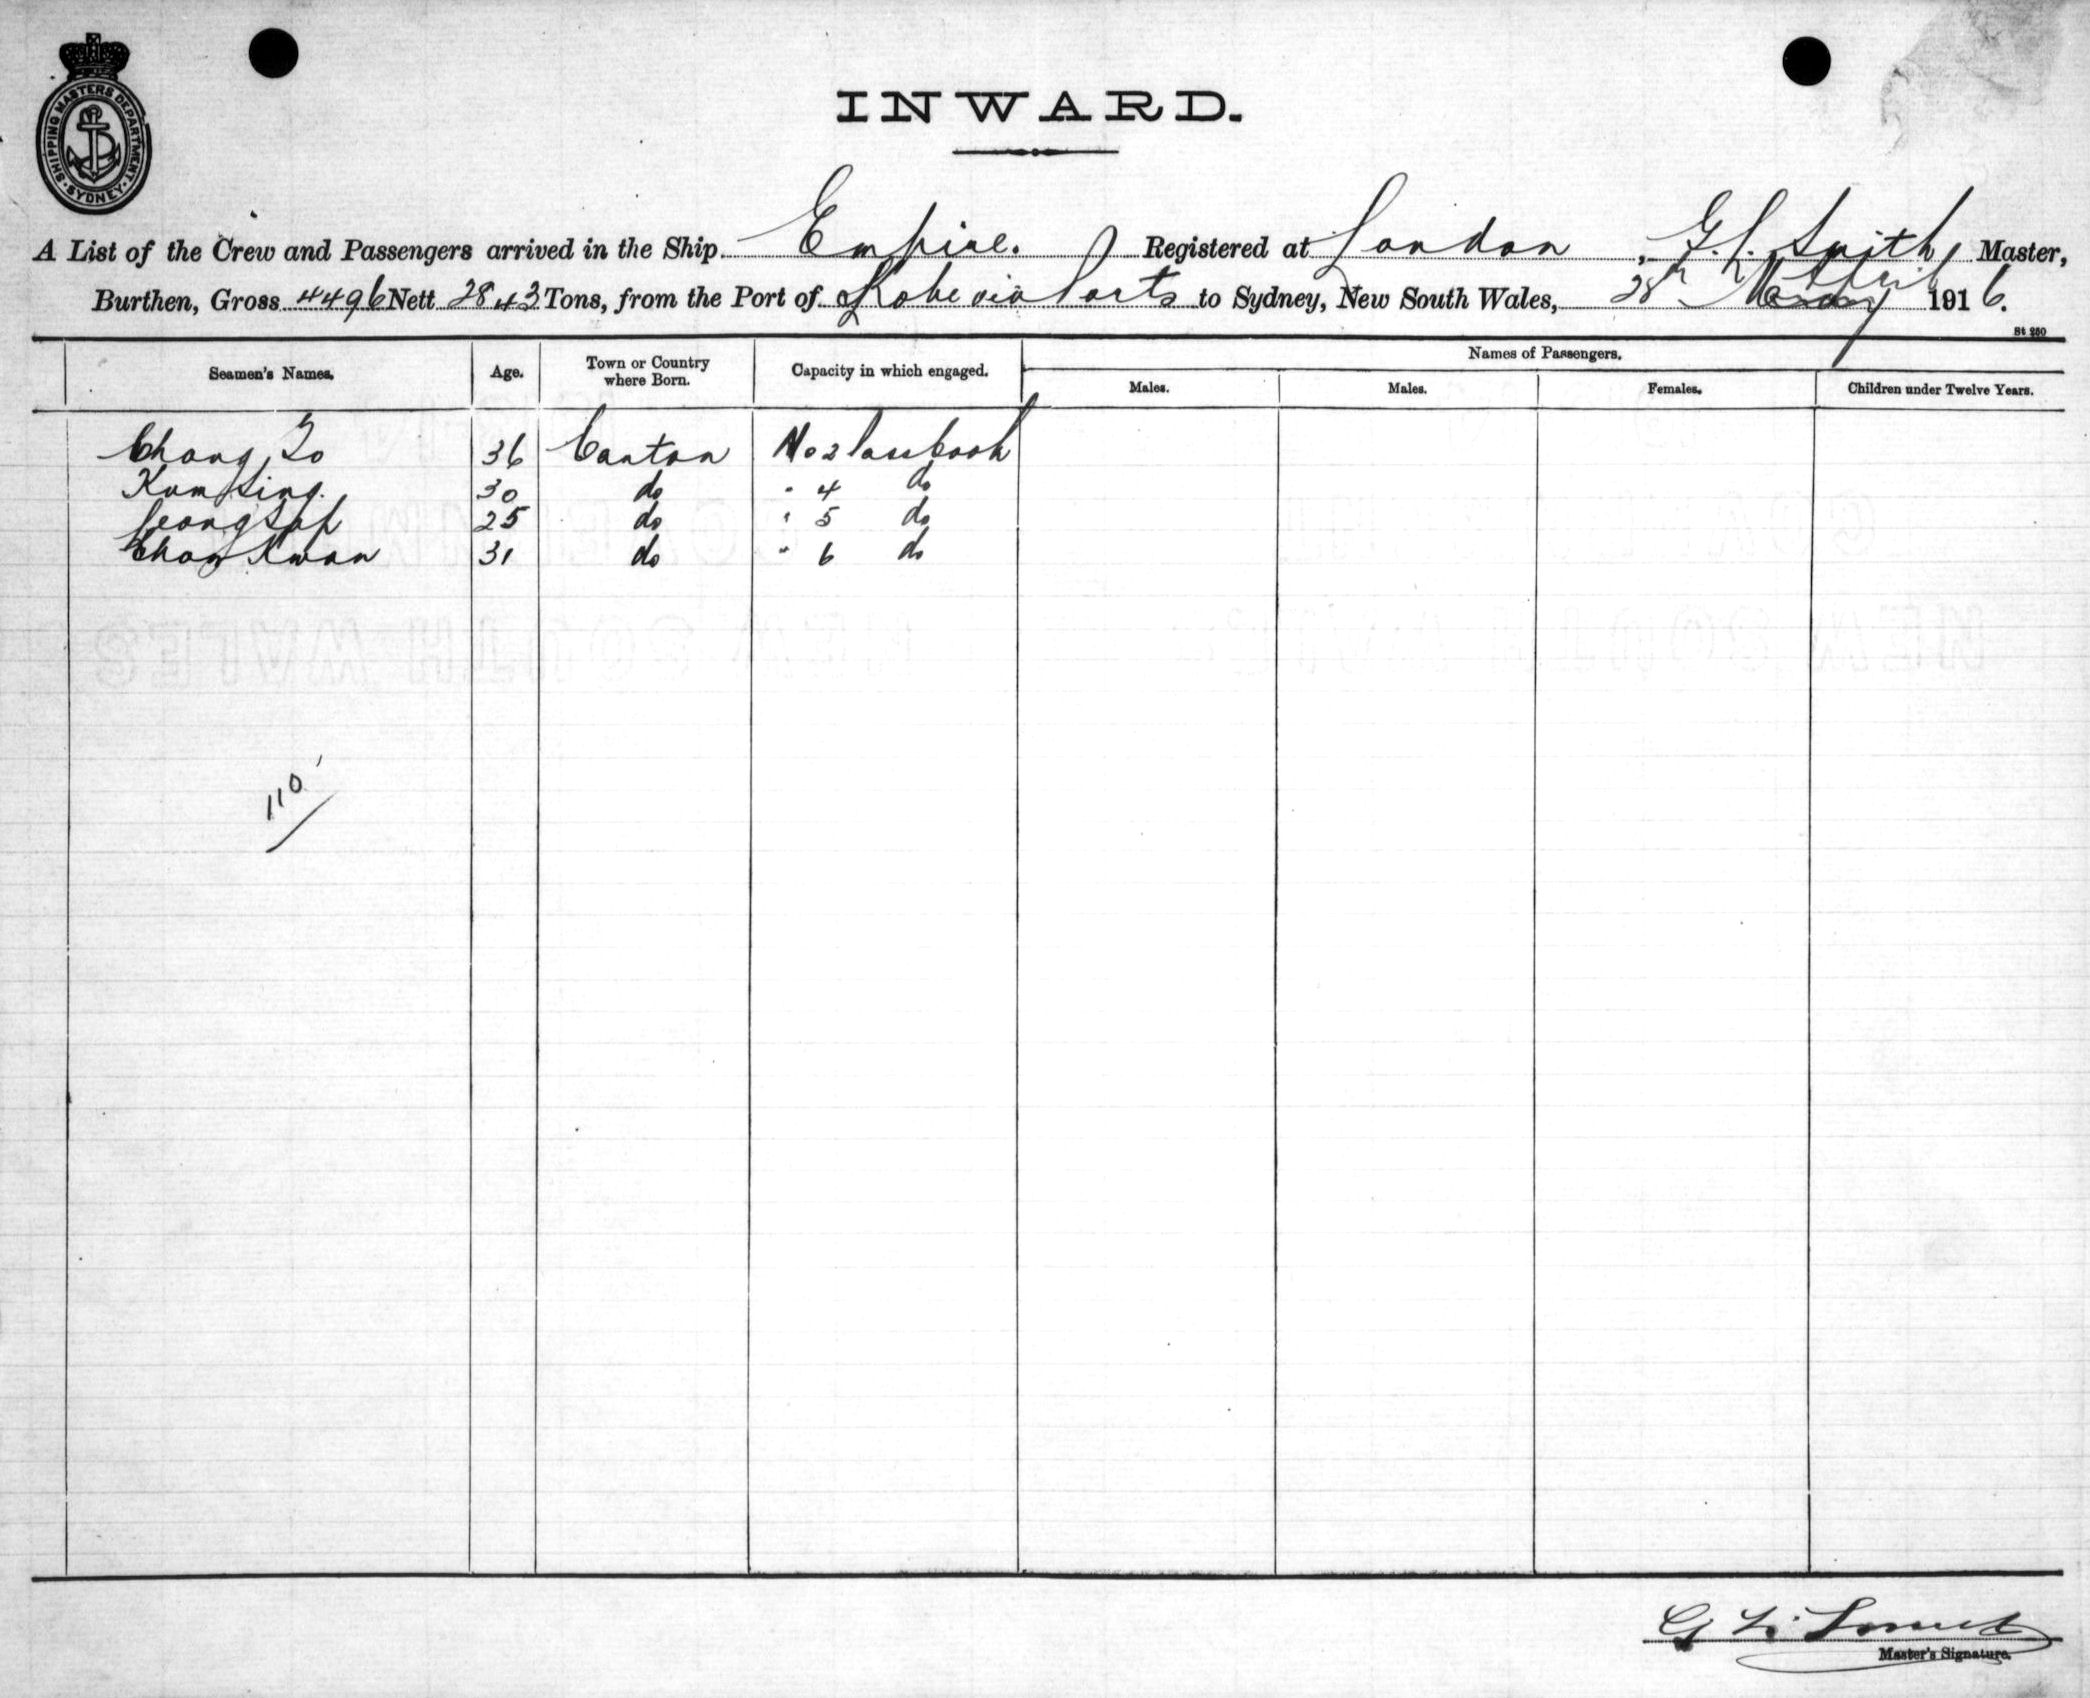 SHIPPING MASTERS DEPARTMENT
SYDNEY
INWARD.
A List of the Crew and Passengers arrived in the Ship Empire. Registered at London, G. L. Smith Master,
Burthen, Gross 4496 Nett 2843 Tons, from the Port of Kobe via Ports to Sydney, New South Wales, 28th April 1916.
St 250
Seamen's Names. Age. Town or Country where Born. Capacity in which engaged. Names of Passengers.
Males. Males. Females. Children under Twelve Years.
Chong 36 Canton No 2 Pass Cook
Kum Sing. 30 do " 4 do
Leong 25 do " 5 do
Chow Kwan 31 do " 6 do
110
G L Smith
Master's Signature.